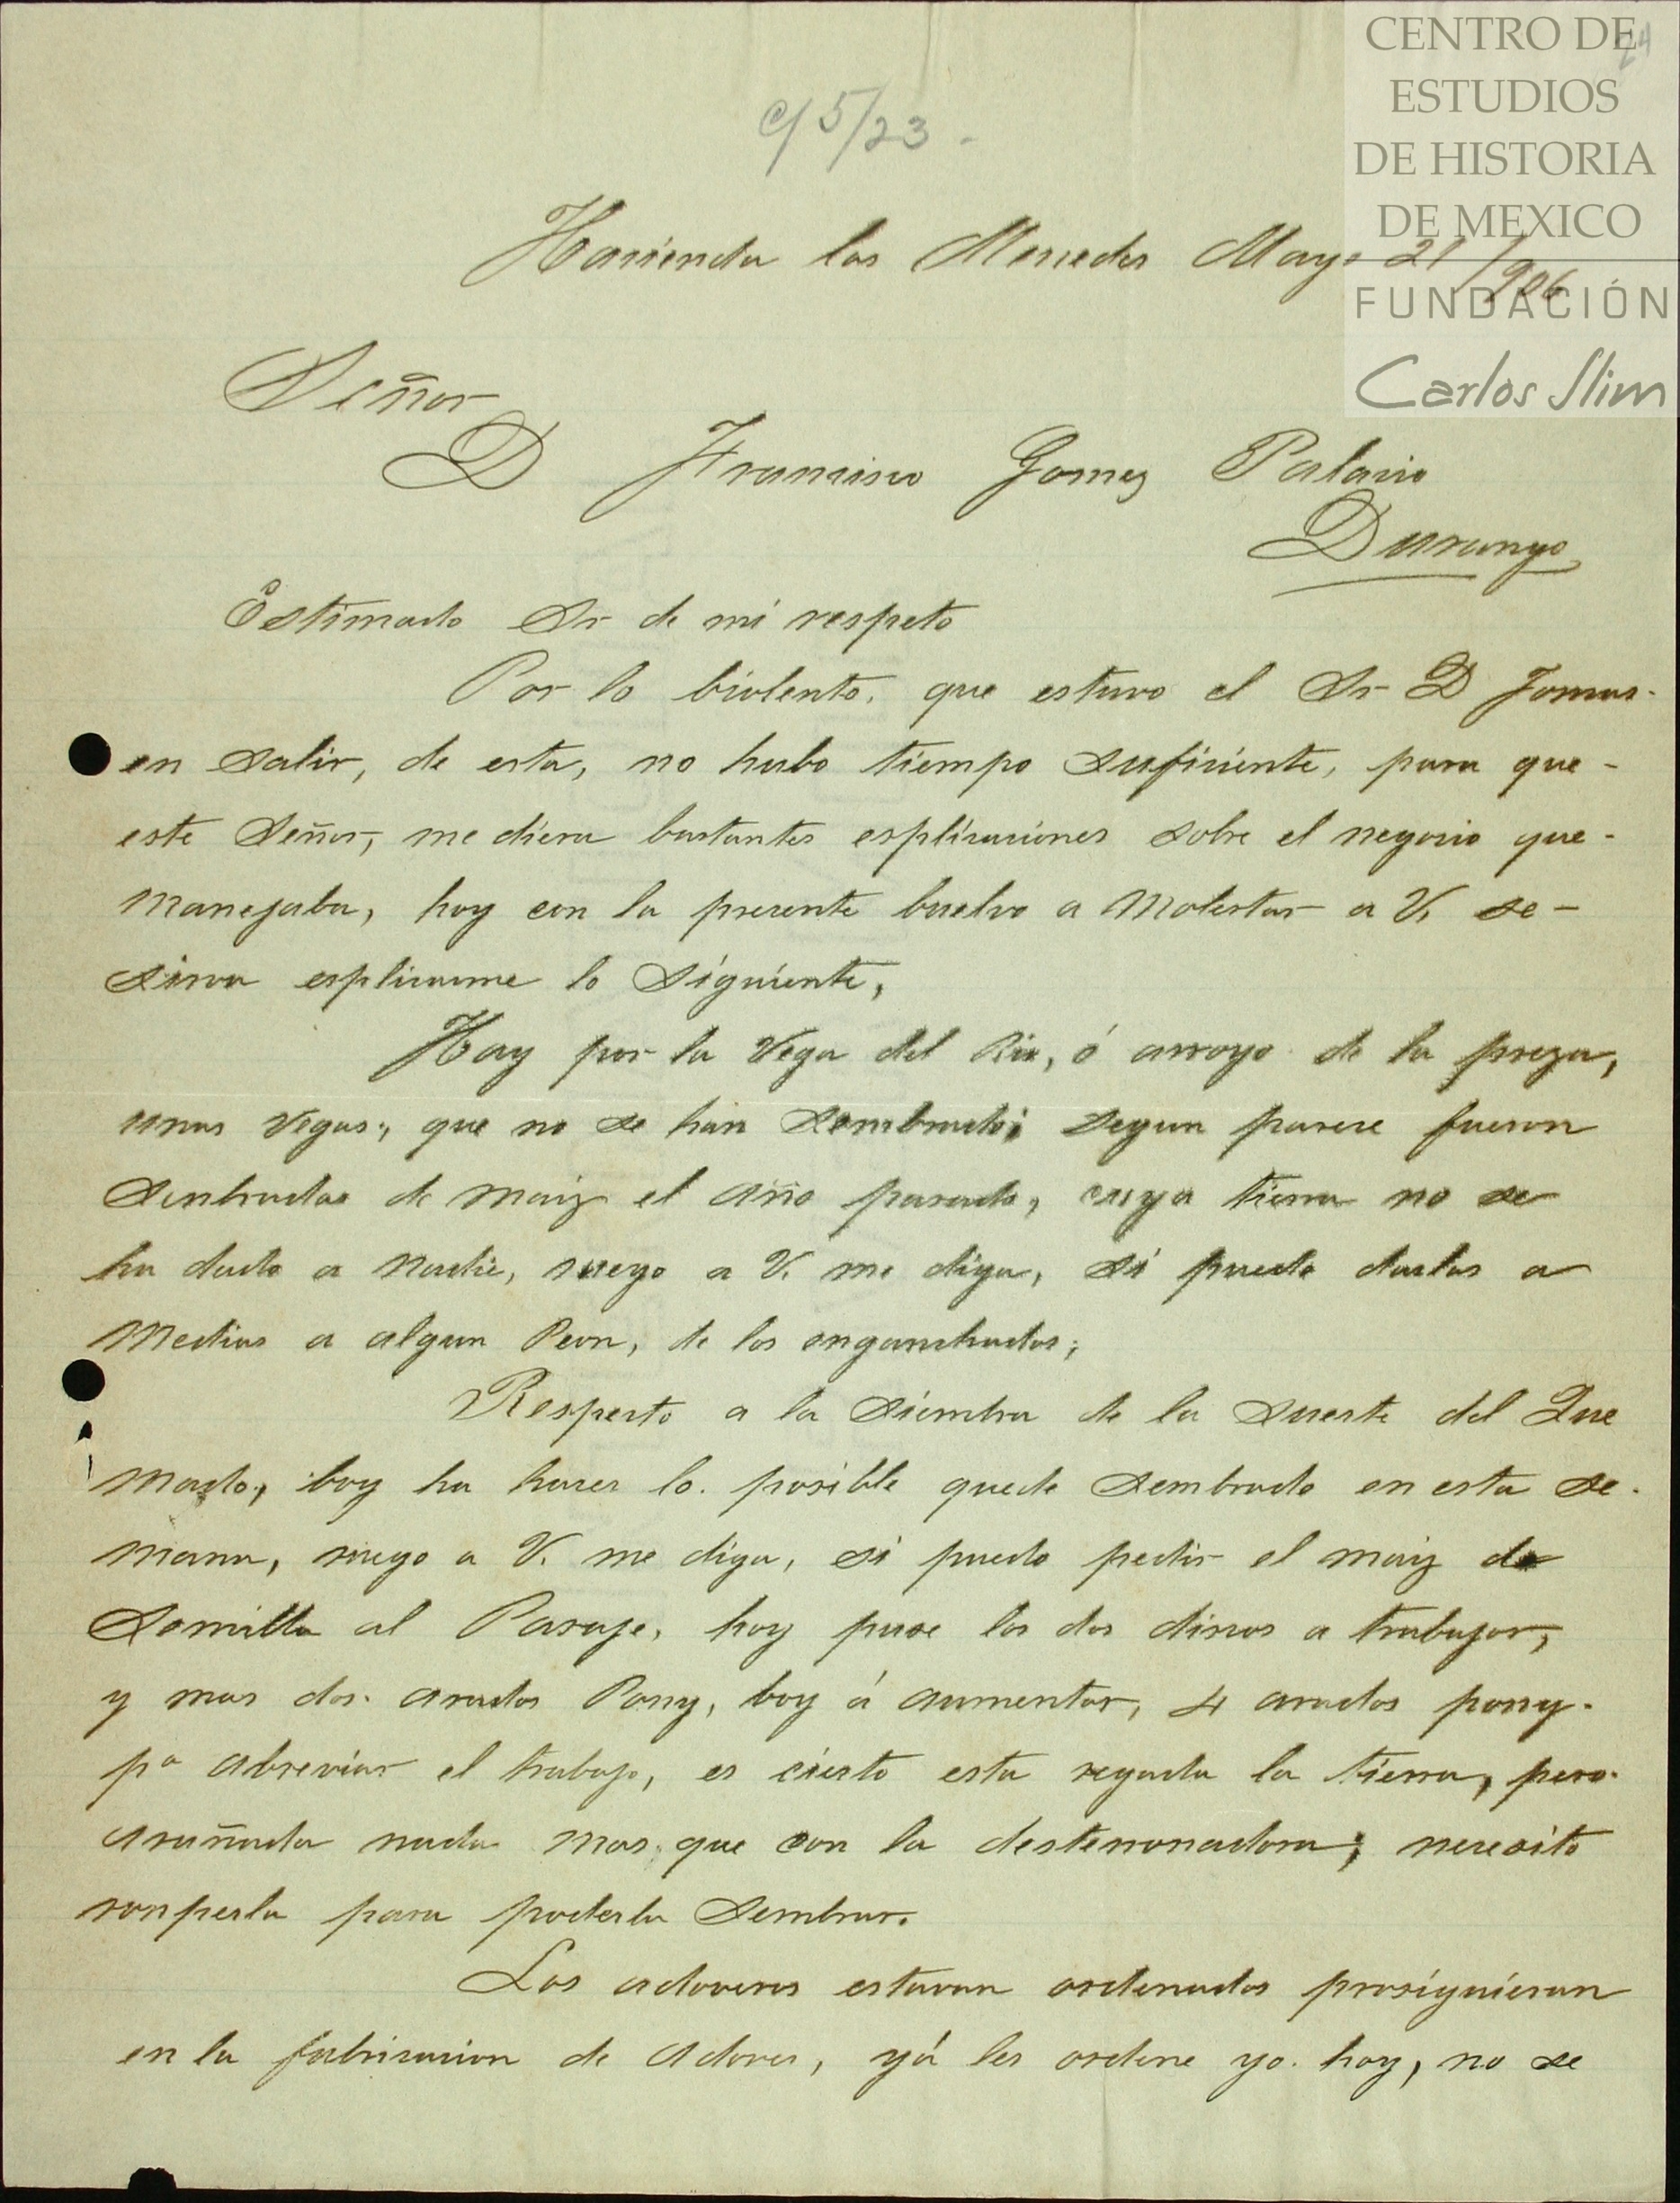 CENTRO DE
ESTUDIOS
DE HISTORIA
DE MEXICO
FUNDACIÓN
Carlos Slim
c/ 5/23.
Hacienda las Mercedes Mayo 21/906
Señor
D Francisco Gomez Palacio
Durango
Estimado Sr de mi respeto
Por lo biolento, que estuvo el Sr D Tomas-
en salir, de esta, no hubo tiempo suficiente, para que-
este Señor, me diera bastantes esplicaciones sobre el negocio que-
manejaba, hoy con la presente buelvo a molestar a V. se-
sirva esplicarme lo siguiente,
Hay por la Vega del Rio, ó arroyo de la preza,
unas vegas, que no se han sembrado; segun parece fueron
senbradas de maiz el año pasado, cuya tierra no se
ha dado a nadie, ruego a V. me diga, si puedo darlas a
medias a algun Peon, de los enganchados;
Respecto a la siembra de la suerte del Que
mado, boy ha hacer lo posible quede sembrado en esta se-
mana, ruego a V. me diga, si puedo pedir el maiz de
semilla al Pasaje, hoy puse los dos discos a trabajar,
y mas dos arados Pony, boy á aumentar, 4 arados pony-
pa abreviar el trabajo, es cierto esta regada la tierra, pero-
arañada nada mas que con la desterronadora; necesito
ronperla para poderla sembrar.
Los adoveros estavan ordenados prosiguieran
en la fabricacion de adoves, yá les ordene yo hoy, no se